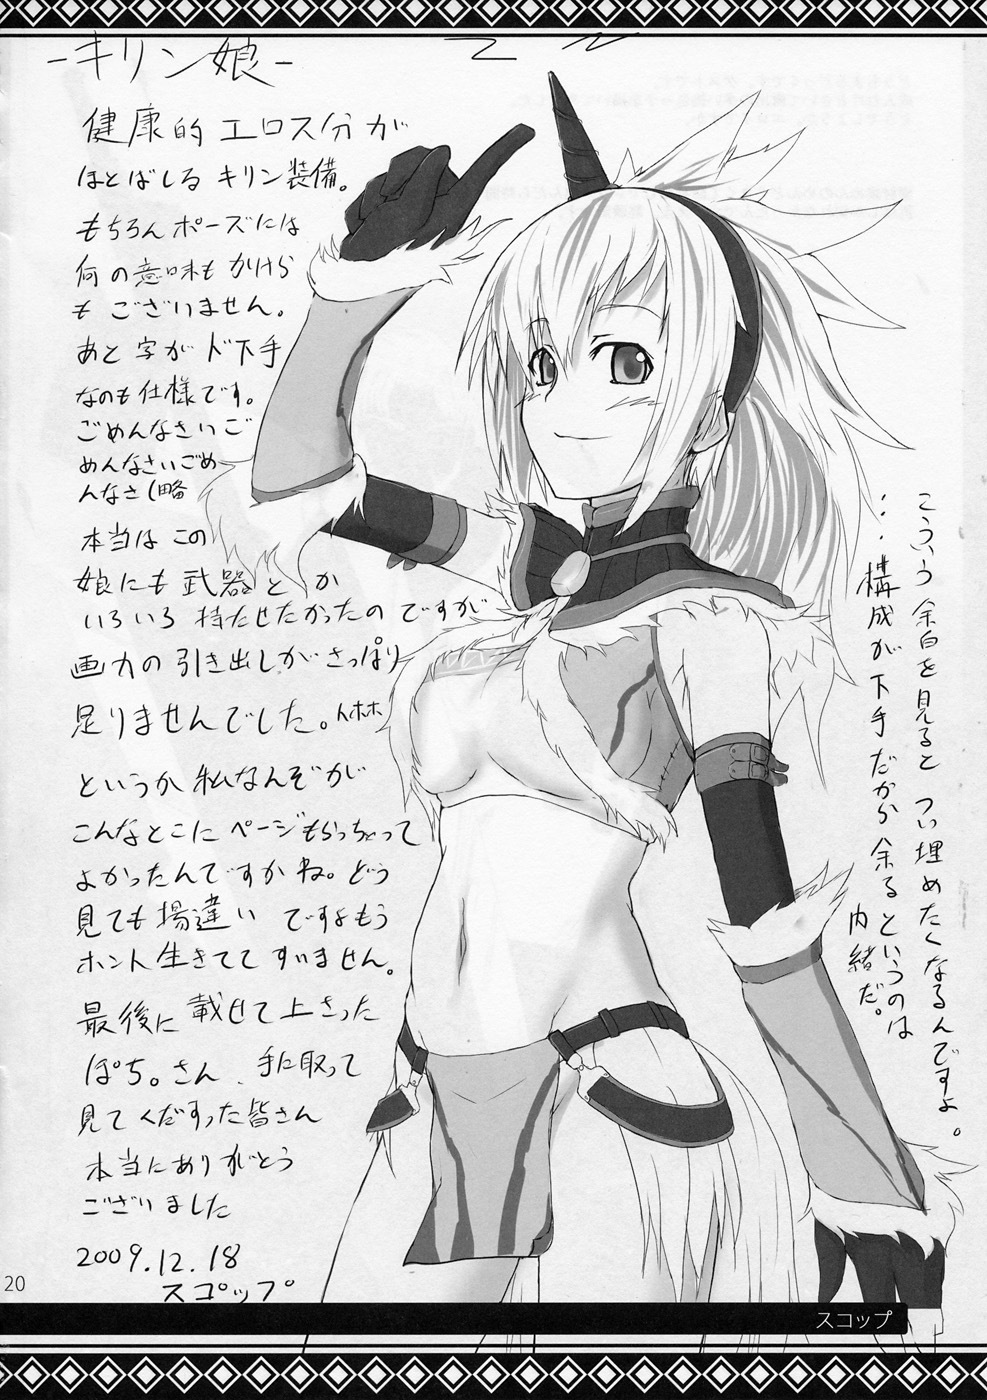 -キリン娘-
健康的エロス分が
ほとばしるキリン装備。
もちろんポーズには
何の意味もかけら
もございません。
あと字がド下手
なのも仕様です。
ごめんなさいご
めんなさいごめ
んなさ(略
本当はこの
娘にも武器とか
いろいろ持たせたかったのですが
画力の引き出しがさっぱり
足りませんでした。
というか私なんぞが
こんなとこにページもらっちゃって
よかったんですかね。どう
見ても場違いですよもう
ホント生きててすいません。
最後に載せて下さった
ぽち。さん、手に取って
見てくださった皆さん
本当にありがとう
ございました
2009.12.18
スコップ
こういう余白を見るとつい埋めたくなるんですよ。
…構成が下手だから余るというのは
内緒だ。
20
スコップ